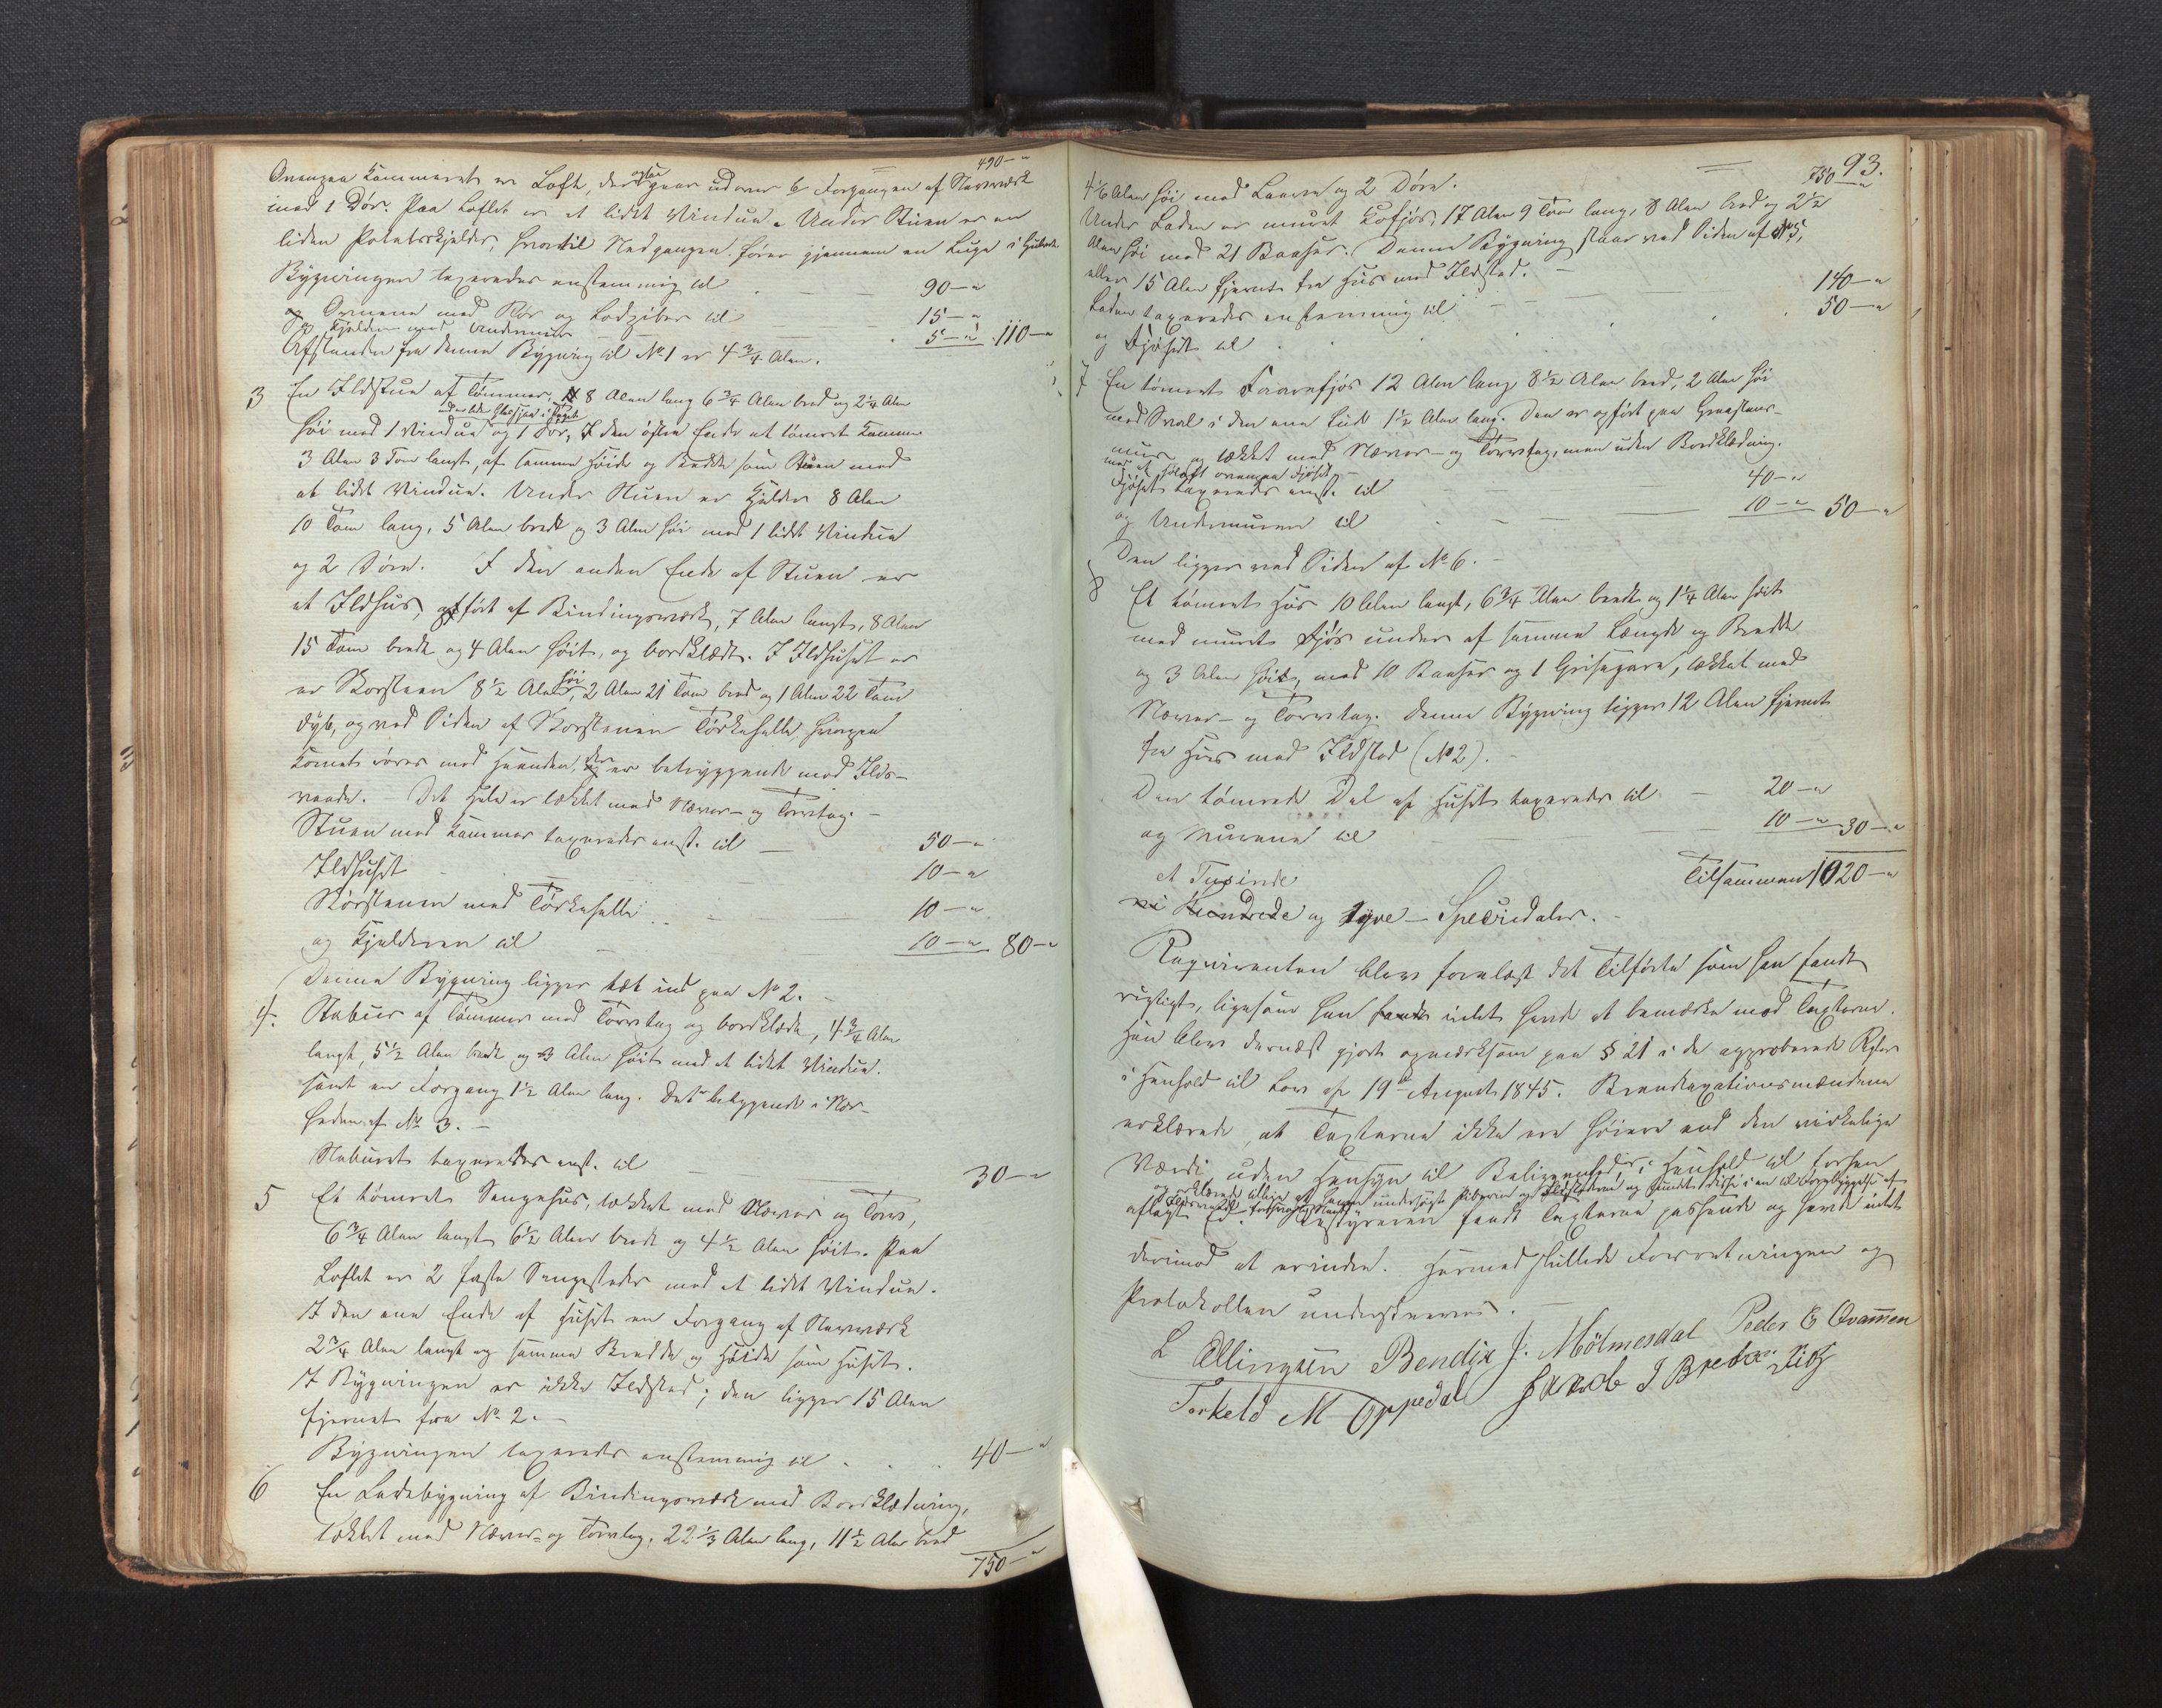 490 — "
Ovenpaa Kammeret er Loft, der ogsaa gaar ud over Forgangen af Stavværk
med 1 Dør. Paa Loftet er et lidet Vindue. Under Stuen er en
liden Potetskjelder, hvortil Nedgangen fører gjennem en Luge i Gulvet.
Bygningen taxeredes enstemmig til — — 90 — "
Ovnene med Rør og til — 15 — "
og Kjelderen med Undermur — — 5 — " 110 — "
Afstanden fra denne Bygning til No 1 er 4 3/4 Alen.
3 En Ildstue af Tømmer, 8 Alen lang 6 3/4 Alen bred og 2 1/4 Alen
høi med 1 Vindue og 1 Dør, I den østre Ende et tømret Kammer
3 Alen 3 Tom langt, af samme Høide og Bredde som Stuen med
et lidet Vindue. Under Stuen er Kjelder 8 Alen
10 Tom lang, 5 Alen bred og 3 Alen høi med 1 lidet Vindue
og 2 Døre. I den anden Ende af Stuen er
et Ildhus, opført af Bindingsværk, 7 Alen langt, 8 Alen
15 Tom bredt og 4 Alen høit, og bordklædt. I Ildhuset er
en Skorsteen 8 1/2 Alen høi, 2 Alen 21 Tom bred og 1 Alen 22 Tom
dyb, og ved Siden af Skorstenen Tørkehelle, hvorpaa
Kornet røres med Haanden, der er betryggende mod Ilds-
vaade. Det Hele er tækket med Næver- og Torvtag. —
Stuen med Kammer taxeredes enst. til — 50 — "
Ildhuset — — — 10 — "
Skorstenen med Tørkehelle — — 10 — "
og Kjelderen til — — 10 — " 80 — "
Denne Bygning ligger tæt ind paa No 2. —
4. Stabur af Tømmer med Torvtag og bordklædt, 4 3/4 Alen
langt, 5 1/2 Alen bredt og 3 Alen høit med et lidet Vindue.
samt en Forgang 1 1/2 Alen lang. Det er beliggende i Nær-
heden af No 3. —
Staburet taxeredes enst. til — — 30 — "
5 Et tømret Sengehus, tækket med Næver og Torv,
6 3/4 Alen langt 6 1/2 Alen bredt og 4 1/2 Alen høit. Paa
Loftet er 2 faste Sengesteder med et lidet Vindue.
I den ene Ende af Huset en Forgang af Stavværk
2 3/4 Alen langt og samme Bredde og Høide som Huset.
I Bygningen er ikke Ildsted; den ligger 15 Alen
fjernet fra No 2. —
Bygningen taxeredes enstemmig til . . . 40 — "
6 En Ladebygning af Bindingsværk med Bordklædning,
tækket med Næver- og Torvtag, 22 1/3 Alen lang, 11 1/2 Alen bred
750 — "
93.
750 — "
4 1/6 Alen høi med Laave og 2 Døre.
Under Laden er muret Kofjøs, 17 Alen 9 Tom lang, 8 Alen bred og 2 1/2
Alen høi med 21 Baaser. Denne Bygning staar ved Siden af No 5,
eller 15 Alen fjernet fra Hus med Ildsted. —
Laden taxeredes enstemmig til — — — 140 — "
og Fjøset til . . . . 50 — "
7 En tømret Faarefjøs 12 Alen lang 8 1/2 Alen bred, 2 Alen høi
med Sval i den ene Ende 1 1/2 Alen lang. Den er opført paa Graastens-
mur og tækket med Næver- og Torvtag, men uden Bordklædning.
med et Høloft ovenpaa Fjøset. —
Fjøset taxeredes enst. til — — 40 — "
og Undermuren til — — 10 — " 50 — "
Den ligger ved Siden af No 6. —
8 Et tømret Hus 10 Alen langt, 6 3/4 Alen bredt og 1 1/4 Alen høit
med muret Fjøs under af samme Længde og Bredde
og 3 Alen høit, med 10 Baaser og 1 Grisegare, tækket med
Næver- og Torvtag. Denne Bygning ligger 12 Alen fjernet
fra Hus med Ildsted (No 2). —
Den tømrede Del af Huset taxeredes til — 20 — "
og Murene til — — 10 — " 30 — "
Tilsammen 1020 — "
et Tusinde
ni Hundrede og tyve — Speciedaler. —
Reqvirenten blev forelæst det Tilførte som han fandt
rigtigt, ligesom han fandt intet havde at bemærke mod Taxterne.
Han blev dernæst gjort opmærksom paa § 21 i de approberede Regler
i Henhold til Lov af 19de August 1845. Brandtaxationsmændene
erklærede, at Taxterne ikke ere høiere end den virkelige
Værdi uden Hensyn til Beliggenhed, i Henhold til forhen
og erklærede tillige at have undersøgt Piberne og Ildstederne og fundet disse i en til Forebyggelse af
Ildsvaade forsvarlig Stand
aflagt Ed. Bestyreren fandt Taxterne passende og havde intet
derimod at erindre. Hermed sluttede Forretningen og
Protokollen underskreves. —
L Ellingsen Bendix J. Mölmesdal Peder E Qvammen
Torkeld M Oppedal Jakob J Brekke